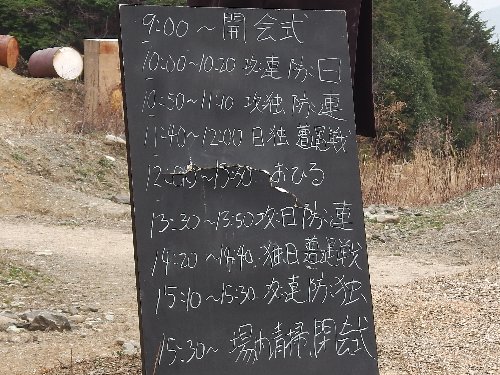 9:00～開会式
10:00～10:20 攻連防日
10:50～11:10 攻独防連
11:40～12:00 日独 遭遇戦
12:00～13:30 おひる
13:30～13:50 攻日防連
14:20～14:40 独日遭遇戦
15:10～15:30 攻連防独
15:30～ 場内清掃、閉会式